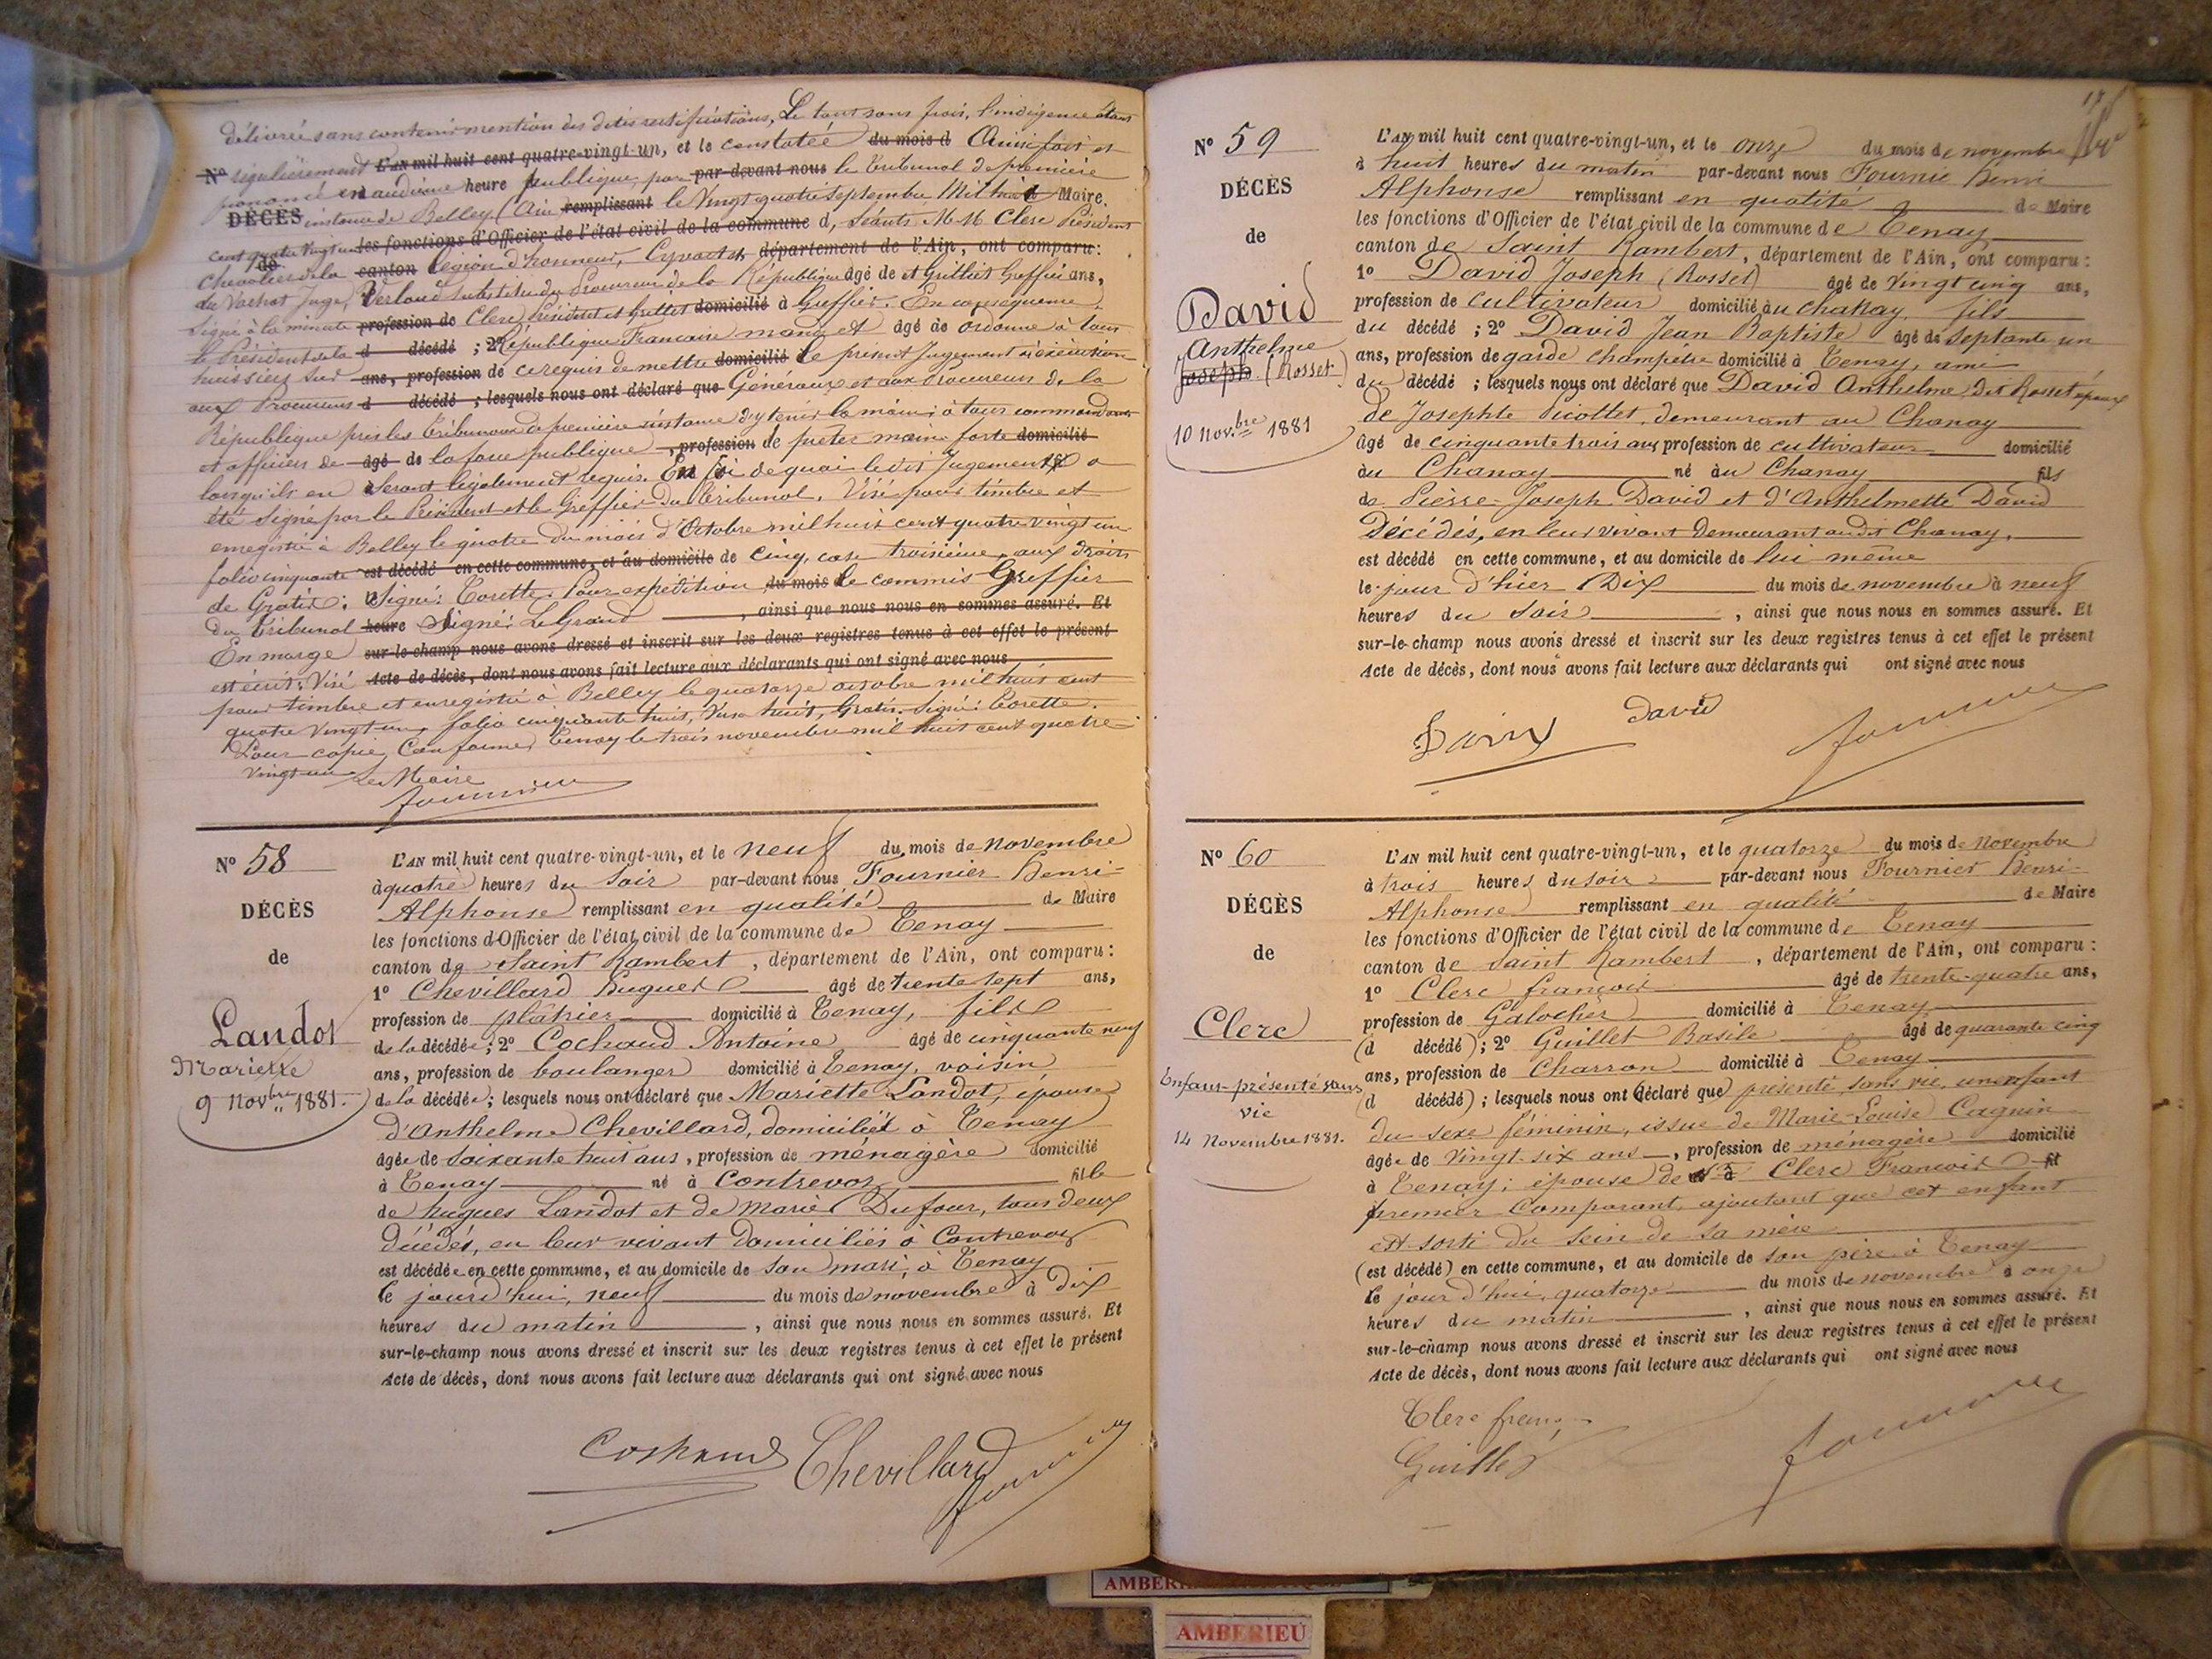 délivrée sans contenir mention des dites rectifications, Le tout sans frais, l'indigence étant
No régulièrement L'AN mil huit cent quatre-vingt-un, et le constatée du mois d Ainsi fait et
prononcé en audience heure publique, par par-devant nous le tribunal de première
DÉCÈS instance de Belley (Ain remplissant le Vingt quatre Septembre Mil huit Maire.
cent quatre vingt un les fonctions d'Officier de l'état civil de la commune d, Séants M M Clerc Président
Chevalier de la canton Légion d'honneur, département de l'Ain, ont comparu:
de Juge, Verlaud Substitut du Procureur de la République âgé de et Greffier ans,
Signé à la minute profession de Clerc Président et domicilié à Greffier. En conséquence
le Président de la d décédé ; 2º République Française mande et âgé de ordonne à tous
huissiers sur ans, profession de ce requis de mettre domicilié le présent Jugement à exécution
aux Procureurs d décédé ; lesquels nous ont déclaré que Généraux et aux Procureurs de la
République près les Tribunaux de première instance d'y tenir la main à tous commandants
et officiers de âgé de la force publique , profession de prêter main forte domicilié
lorsqu'ils en seront légalement requis. En foi de quoi le dit Jugement a
été signé par le Président et le Greffier du tribunal. Visé pour timbre et
enregistré à Belley le quatre du mois d'Octobre mil huit cent quatre vingt un
folio cinquante est décédé en cette commune, et au domicile de cinq, case troisième, aux droits
de Gratis: Signé: Corette. Pour expédition du mois de le commis Greffier
du tribunal heure Signé: LeGrand , ainsi que nous nous en sommes assuré. Et
En marge sur-le-champ nous avons dressé et inscrit sur les deux registres tenus à cet effet le présent
est écrit: Visé Acte de décès, dont nous avons fait lecture aux déclarants qui ont signé avec nous
pour timbre et enregistré à Belley le quatorze octobre mil huit cent
quatre vingt un, folio cinquante huit, huit, Gratis. Signé: Corette.
Pour copie Conforme, Tenay le trois novembre mil huit cent quatre
vingt un Le Maire
Fournier
No 58
DÉCÈS
de
Landot
Mariette
9 Novbre 1881.
L'AN mil huit cent quatre-vingt-un, et le neuf du mois de novembre
à quatre heures du soir par-devant nous Fournier Henri-
Alphonse remplissant en qualité de Maire
les fonctions d'Officier de l'état civil de la commune de Tenay
canton de Saint Rambert, département de l'Ain, ont comparu:
1º Chevillard Huguet âgé de trente sept ans,
profession de plâtrier domicilié à Tenay, fils
de la décédée; 2º Cochaud Antoine âgé de cinquante neuf
ans, profession de boulanger domicilié à Tenay, voisin
de la décédée; lesquels nous ont déclaré que Mariette Landot, épouse
d'Anthelme Chevillard, domiciliée à Tenay
âgée de soixante huit ans, profession de ménagère domicilié
à Tenay né à Contrevoz fille
de hugues Landot et de Marie Dufour, tous deux
décédés, en leur vivant domiciliés à Contrevoz
est décédée en cette commune, et au domicile de son mari, à Tenay
le jourd'hui, neuf du mois de novembre à dix
heures du matin , ainsi que nous nous en sommes assuré. Et
sur-le-champ nous avons dressé et inscrit sur les deux registres tenus à cet effet le présent
Acte de décès, dont nous avons fait lecture aux déclarants qui ont signé avec nous
Cochaud Chevillard Fournier
No 59
DÉCÈS
de
David
Anthelme
Joseph (Rosset)
10 Novbre 1881
L'AN mil huit cent quatre-vingt-un, et le onze du mois de novembre
à huit heures du matin par-devant nous Fournier Henri
Alphonse remplissant en qualité de Maire
les fonctions d'Officier de l'état civil de la commune de Tenay
canton de Saint Rambert, département de l'Ain, ont comparu:
1º David Joseph (Rosset) âgé de Vingt cinq ans,
profession de cultivateur domicilié au chanay, fils
du décédé ; 2º David Jean Baptiste âgé de Septante un
ans, profession de garde champêtre domicilié à Tenay, ami
du décédé ; lesquels nous ont déclaré que David Anthelme, dit Rosset époux
de Josephte Picottet, demeurant au Chanay
âgé de cinquante trois ans, profession de cultivateur domicilié
au Chanay né au Chanay fils
de Pierre-Joseph David et d'Anthelmette David
Décédés, en leur vivant Demeurant audit Chanay.
est décédé en cette commune, et au domicile de lui même
le jour d'hier Dix du mois de novembre à neuf
heures du soir , ainsi que nous nous en sommes assuré. Et
sur-le-champ nous avons dressé et inscrit sur les deux registres tenus à cet effet le présent
Acte de décès, dont nous avons fait lecture aux déclarants qui ont signé avec nous
David David Fournier
No 60
DÉCÈS
de
Clerc
Enfant présenté sans
vie
14 Novembre 1881.
L'AN mil huit cent quatre-vingt-un, et le quatorze du mois de Novembre
à trois heures du soir par-devant nous Fournier Henri-
Alphonse remplissant en qualité de Maire
les fonctions d'Officier de l'état civil de la commune de Tenay
canton de Saint Rambert, département de l'Ain, ont comparu:
1º Clerc françois âgé de trente-quatre ans,
profession de Galocher domicilié à Tenay
(d décédé); 2º Guillet Basile âgé de quarante cinq
ans, profession de Charron domicilié à Tenay
(d décédé); lesquels nous ont déclaré que) présenté sans vie, un enfant
du sexe féminin, issue de Marie-Louise Cagnin
âgée de Vingt-six ans, profession de ménagère domicilié
à Tenay; épouse de Clerc François fil
premier Comparant, ajoutant que cet enfant
est sorti du sein de sa mère
(est décédé) en cette commune, et au domicile de son père à Tenay
le jour d'hui, quatorze du mois de novembre à onze
heures du matin , ainsi que nous nous en sommes assuré. Et
sur-le-champ nous avons dressé et inscrit sur les deux registres tenus à cet effet le présent
Acte de décès, dont nous avons fait lecture aux déclarants qui ont signé avec nous
Clerc franç
Guillet Fournier
AMBERIEU